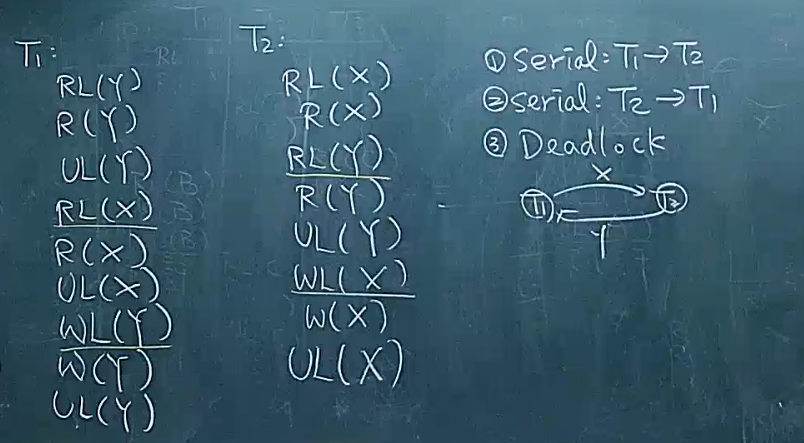 T1:
RL(Y)
R(Y)
UL(Y)
RL(X)
R(X)
UL(X)
WL(Y)
W(Y)
UL(Y)
T2:
RL(X)
R(X)
RL(Y)
R(Y)
UL(Y)
WL(X)
W(X)
UL(X)
① Serial: T1→T2
② Serial: T2→T1
③ Deadlock
X
T1 T2
Y